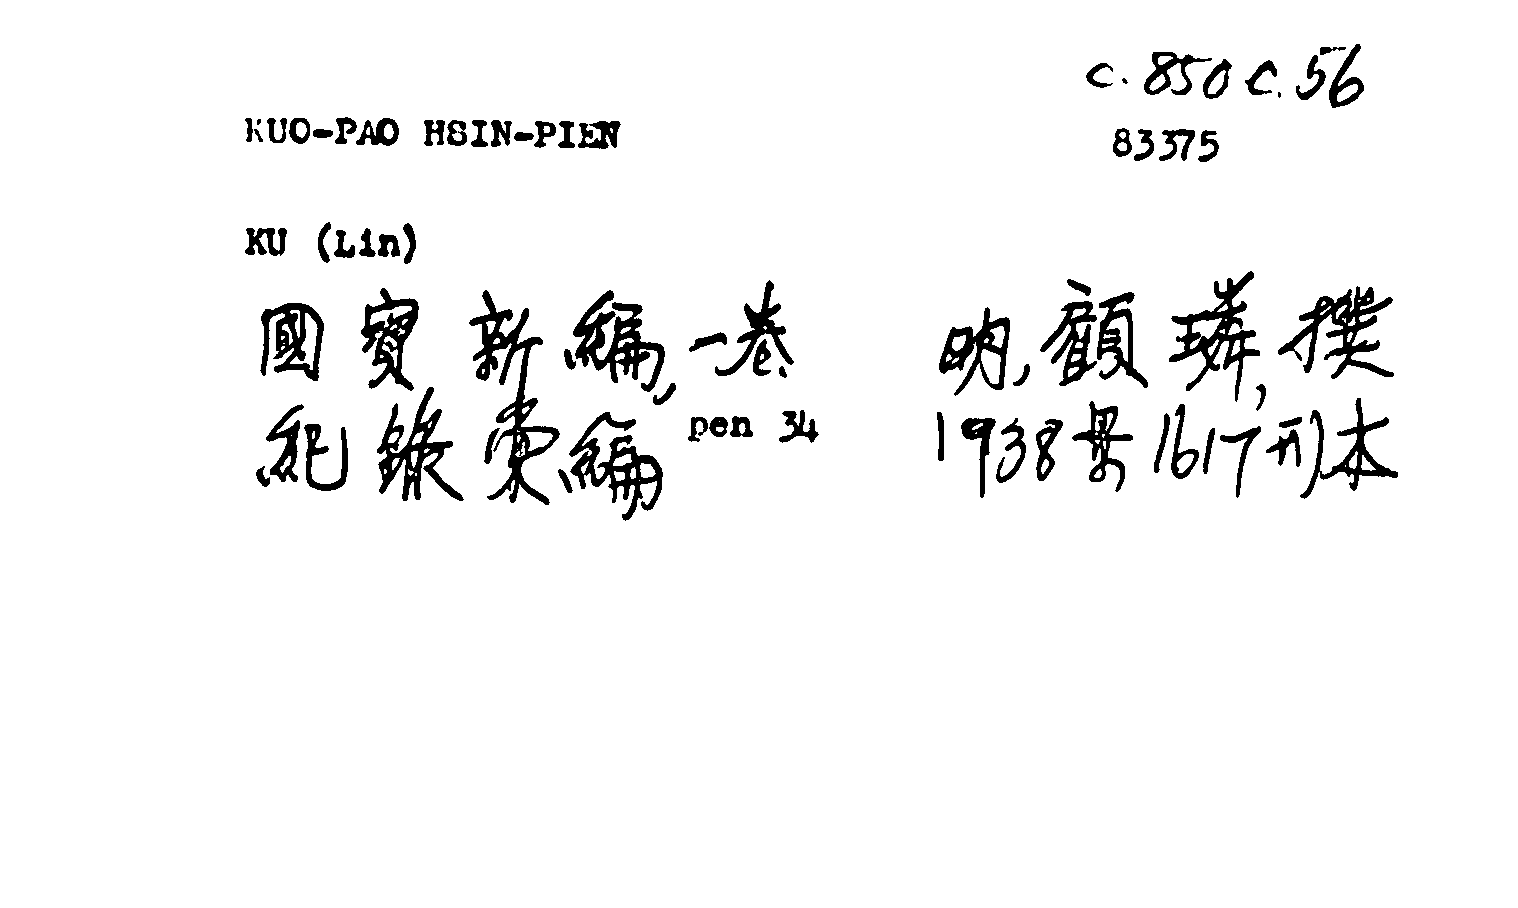 C. 850 C. 56
KUO-PAO HSIN-PIEN
83375
KU (Lin)
國寶新編, 一卷 明, 顧璘, 撰
紀錄彙編 pen 34 1938景1617刊本